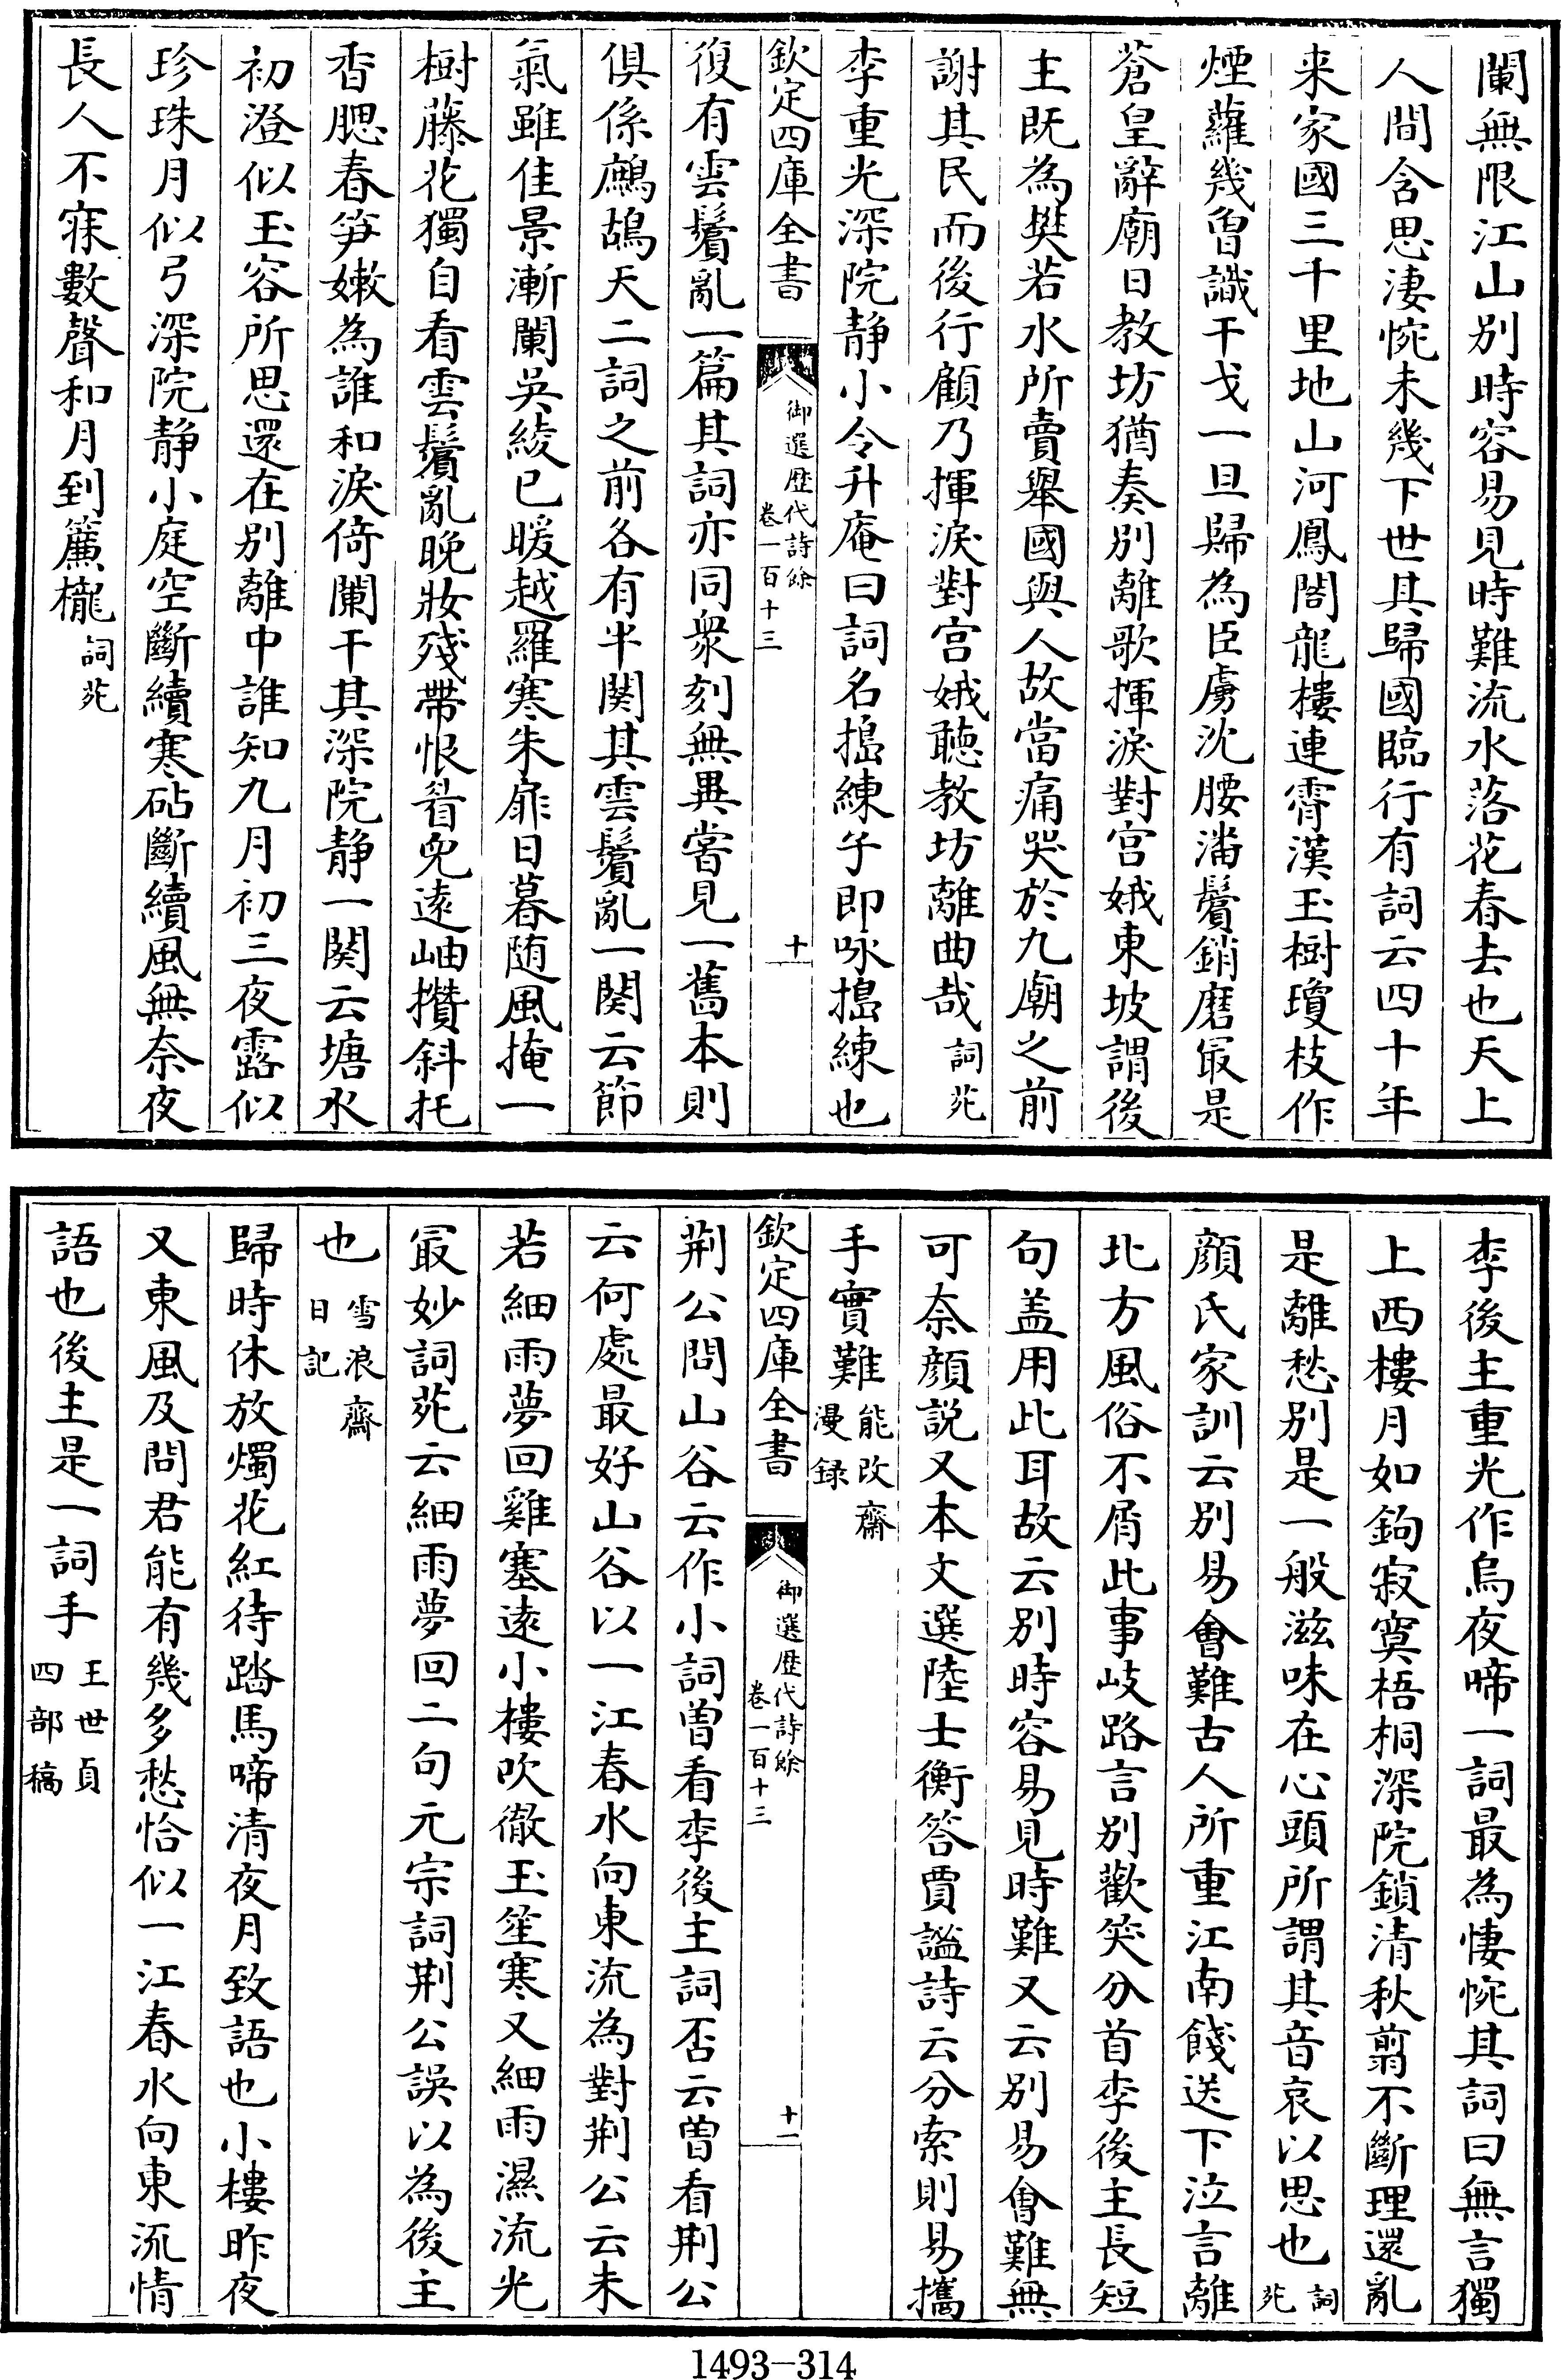 闌無限江山別時容易見時難流水落花春去也天上
人間含思淒惋未幾下世其歸國臨行有詞云四十年
来家國三千里地山河鳳閣龍樓連霄漢玉樹瓊枝作
煙蘿幾曾識干戈一旦歸為臣虜沈腰潘鬢銷磨最是
蒼皇辭廟日教坊猶奏別離歌揮淚對宫娥東坡謂後
主既為樊若水所賣舉國與人故當痛哭於九廟之前
謝其民而後行顧乃揮淚對宫娥聽教坊離曲哉詞苑
李重光深院静小令升庵曰詞名搗練子即咏搗練也
欽定四庫全書
御選歴代詩餘
卷一百十三
十
復有雲鬢亂一篇其詞亦同衆刻無異嘗見一舊本則
俱係鷓鴣天二詞之前各有半闋其雲鬢亂一闋云節
氣雖佳景漸闌吳綾已暖越羅寒朱扉日暮随風掩一
樹藤花獨自看雲鬢亂晚妝殘帶恨眉兒遠岫攢斜托
香腮春笋嫩為誰和淚倚闌干其深院静一闋云塘水
初澄似玉容所思還在別離中誰知九月初三夜露似
珍珠月似弓深院静小庭空斷續寒砧斷續風無奈夜
長人不寐數聲和月到簾櫳詞苑
李後主重光作烏夜啼一詞最為悽惋其詞曰無言獨
上西樓月如鉤寂寞梧桐深院鎖清秋翦不斷理還亂
是離愁別是一般滋味在心頭所謂其音哀以思也詞苑
顔氏家訓云別易會難古人所重江南餞送下泣言離
北方風俗不屑此事岐路言別歡笑分首李後主長短
句盖用此耳故云別時容易見時難又云別易會難無
可奈顔説又本文選陸士衡答賈謐詩云分索則易攜
手實難能改齋漫録
欽定四庫全書
御選歴代詩餘
卷一百十三
十一
荆公問山谷云作小詞曽看李後主詞否云曽看荆公
云何處最好山谷以一江春水向東流為對荆公云未
若細雨夢回雞塞遠小樓吹徹玉笙寒又細雨濕流光
最妙詞苑云細雨夢回二句元宗詞荆公誤以為後主
也雪浪齋日記
歸時休放燭花紅待踏馬啼清夜月致語也小樓昨夜
又東風及問君能有幾多愁恰似一江春水向東流情
語也後主是一詞手王世貞四部稿
1493-314